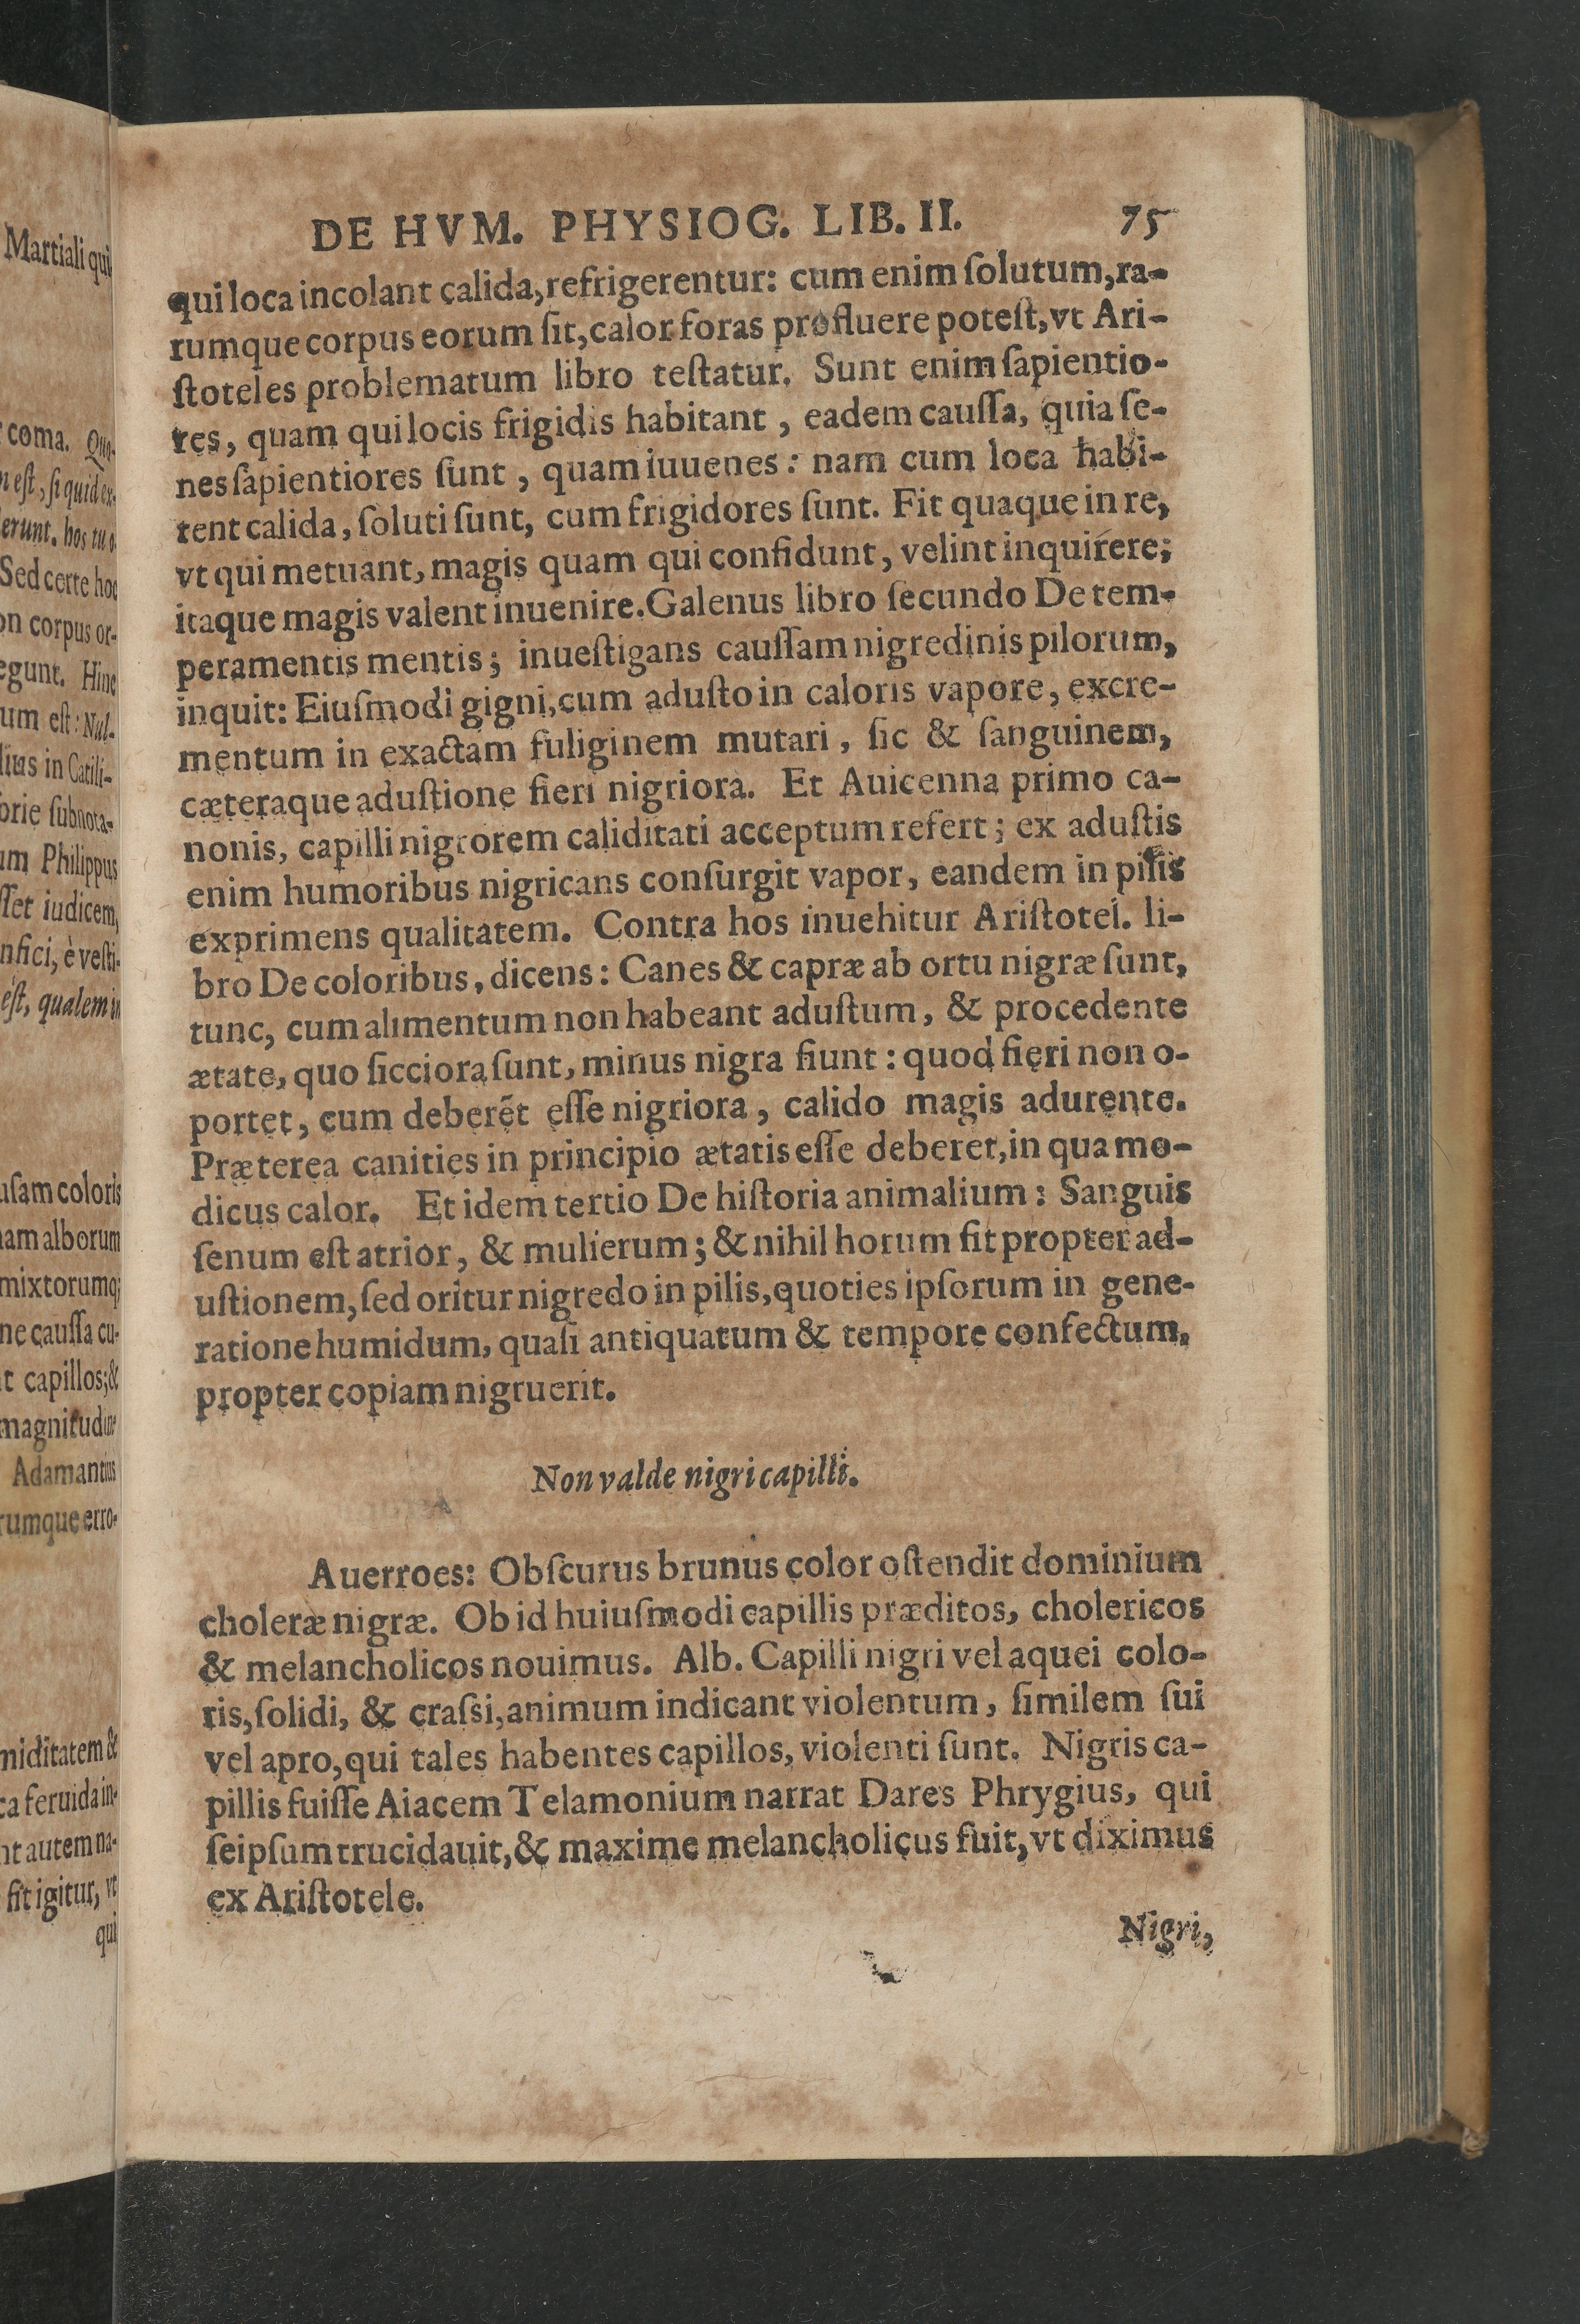 DE HVM. PHYSIOG. LIB. II. 75
qui loca incolant calida, refrigerentur: cum enim ſolutum, ra-
rumque corpus eorum ſit, calor foras profluere poteſt, vt Ari-
ſtoteles problematum libro teſtatur. Sunt enim ſapientio-
res, quam qui locis frigidis habitant, eadem cauſſa, quia ſe-
nes ſapientiores ſunt, quam iuuenes: nam cum loca habi-
tent calida, ſoluti ſunt, cum frigidores ſunt. Fit quaque in re,
vt qui metuant, magis quam qui confidunt, velint inquirere;
itaque magis valent inuenire. Galenus libro ſecundo De tem-
peramentis mentis; inueſtigans cauſſam nigredinis pilorum,
inquit: Eiuſmodi gigni, cum aduſto in caloris vapore, excre-
mentum in exactam fuliginem mutari, ſic & ſanguinem,
cæteraque aduſtione fieri nigriora. Et Auicenna primo ca-
nonis, capilli nigrorem caliditati acceptum refert; ex aduſtis
enim humoribus nigricans conſurgit vapor, eandem in pilis
exprimens qualitatem. Contra hos inuehitur Ariſtotel. li-
bro De coloribus, dicens: Canes & capræ ab ortu nigræ ſunt,
tunc, cum alimentum non habeant aduſtum, & procedente
ætate, quo ſicciora ſunt, minus nigra fiunt: quod fieri non o-
portet, cum deberẽt eſſe nigriora, calido magis adurente.
Præterea canities in principio ætatis eſſe deberet, in qua mo-
dicus calor. Et idem tertio De hiſtoria animalium: Sanguis
ſenum eſt atrior, & mulierum; & nihil horum fit propter ad-
uſtionem, ſed oritur nigredo in pilis, quoties ipſorum in gene-
ratione humidum, quaſi antiquatum & tempore confectum,
propter copiam nigruerit.
Non valde nigri capilli.
Auerroes: Obſcurus brunus color oſtendit dominium
choleræ nigræ. Ob id huiuſmodi capillis præditos, cholericos
& melancholicos nouimus. Alb. Capilli nigri vel aquei colo-
ris, ſolidi, & craſsi, animum indicant violentum, ſimilem ſui
vel apro, qui tales habentes capillos, violenti ſunt. Nigris ca-
pillis fuiſſe Aiacem Telamonium narrat Dares Phrygius, qui
ſeipſum trucidauit, & maxime melancholicus fuit, vt diximus
ex Ariſtotele.
Nigri,
Martiali qui
coma. Quo-
eſt, ſi quid ex-
erunt. hos tu o
Sed certe hoc
on corpus or-
egunt. Hinc
um eſt: Nul-
lius in Catili-
orie ſubnota-
um Philippus
ſſet iudicem,
nfici, è veſti-
éſt, qualem in
uſam coloris
nam alborum
mixtorumq;
ne cauſſa cu-
t capillos; &
magnitudine
Adamantius
rumque erro-
miditatem &
ca feruida in-
nt autem na-
fit igitur, vt
qui